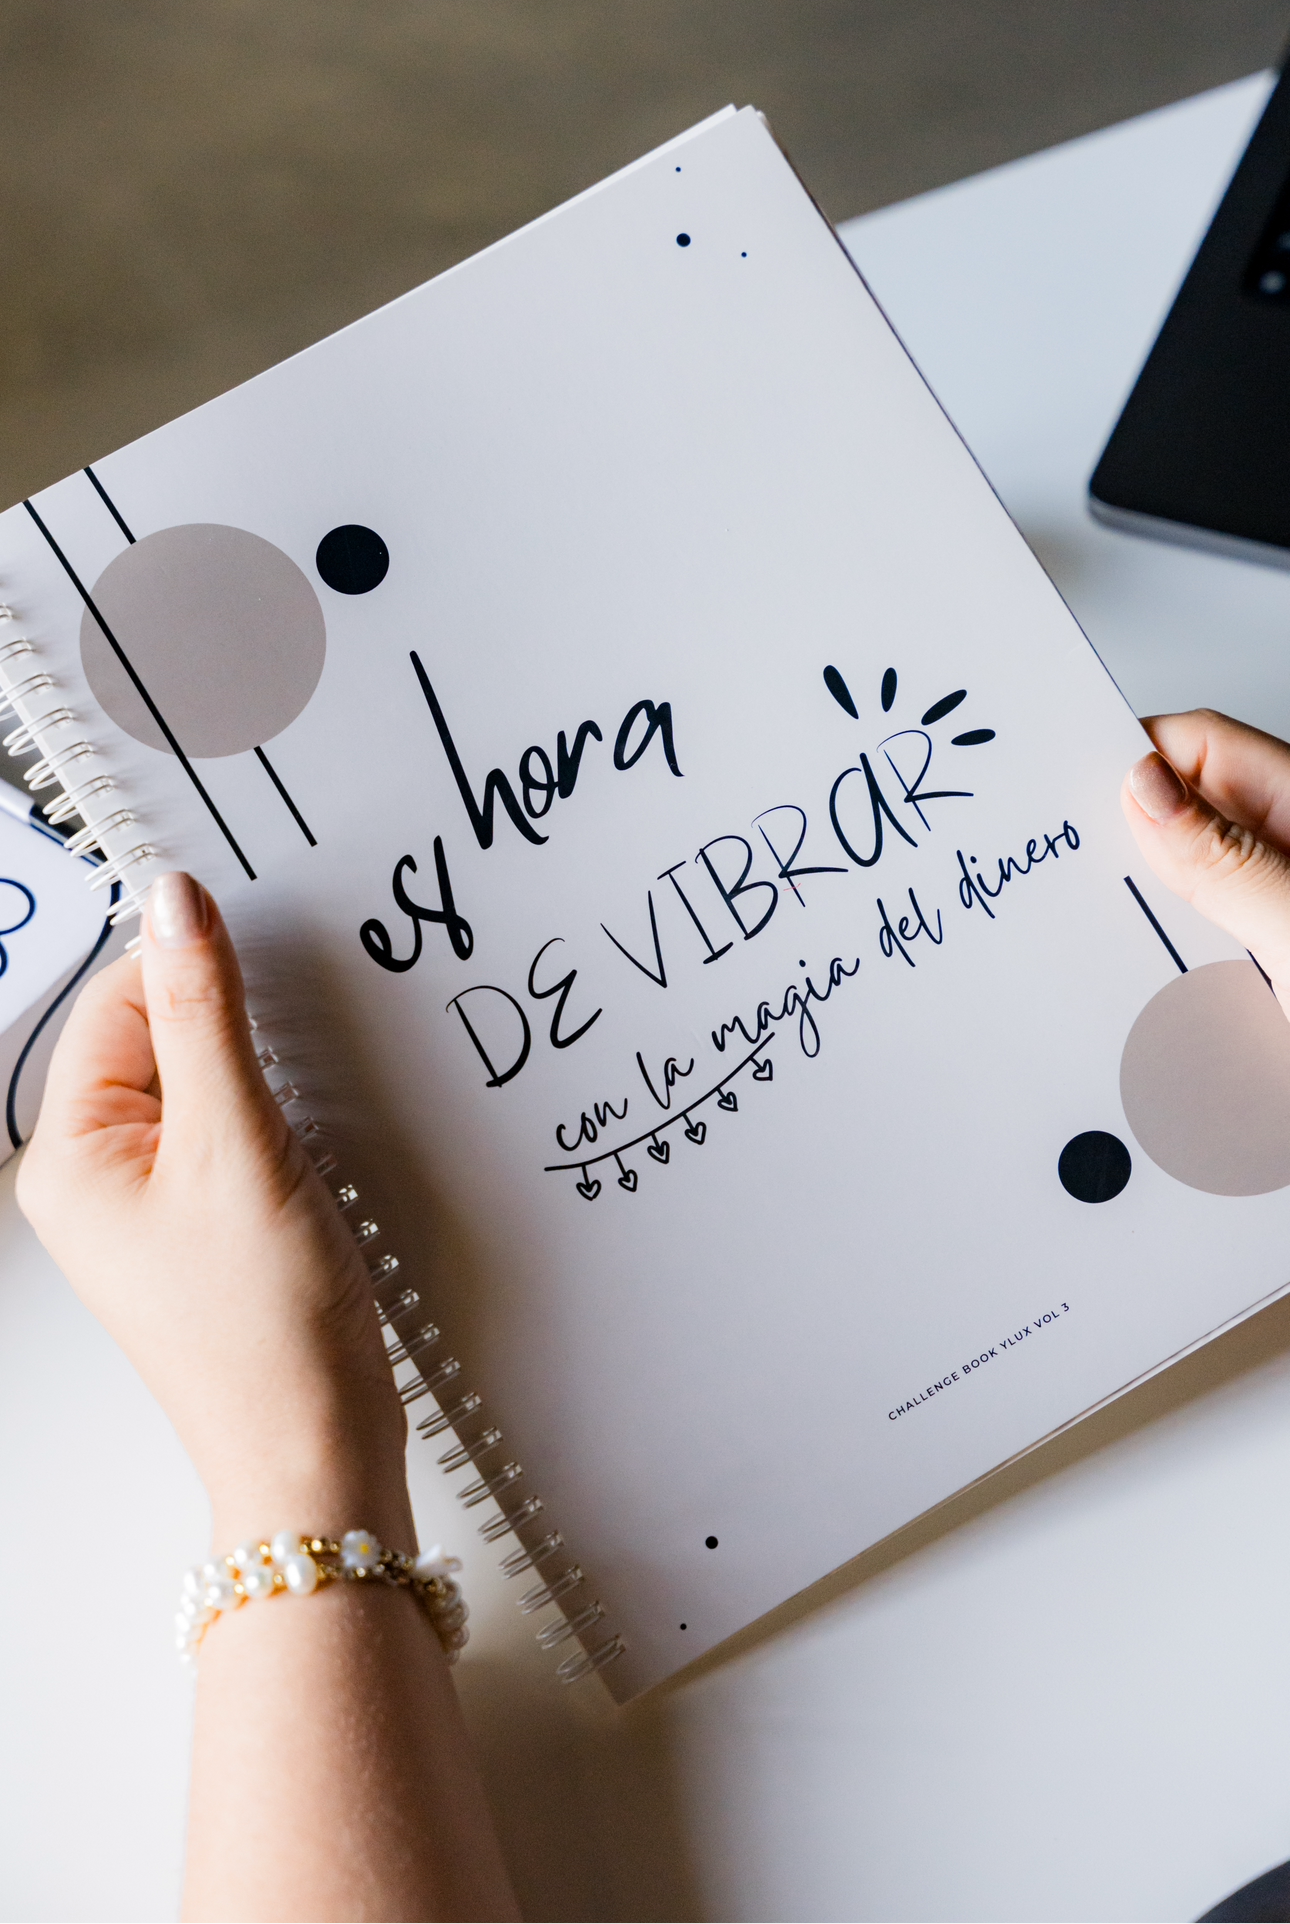 es hora
DE VIBRAR
con la magia del dinero
CHALLENGE BOOK YLUX VOL 3